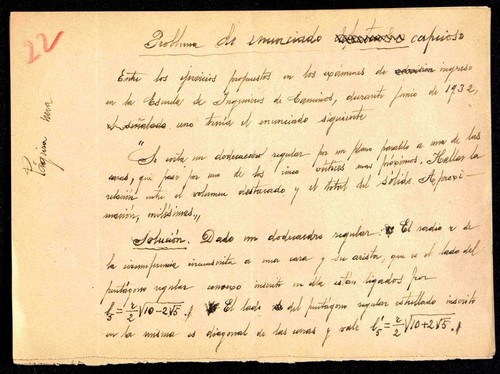 22
Problema de enunciado capcioso
Entre los ejercicios propuestos en los exámenes de ingreso
en la Escuela de Ingenieros de Caminos, durante junio de 1932,
uno tenía el enunciado siguiente
"Se corta un dodecaedro regular por un plano paralelo a una de las
caras, que pase por uno de los cinco vértices mas próximos. Hallar la
relación entre el volumen destacado y el total del sólido. Aproxi-
mación, milésimas.„
Solución. Dado un dodecaedro regular. El radio r de
la circunferencia circunscrita a una cara y su arista, que es el lado del
pentágono regular convexo inscrito en ella están ligados por
l₅ = r/2 √10-2√5. El lado del pentágono regular estrellado inscrito
en la misma es diagonal de las caras y vale l'₅ = r/2 √10+2√5.
Página una